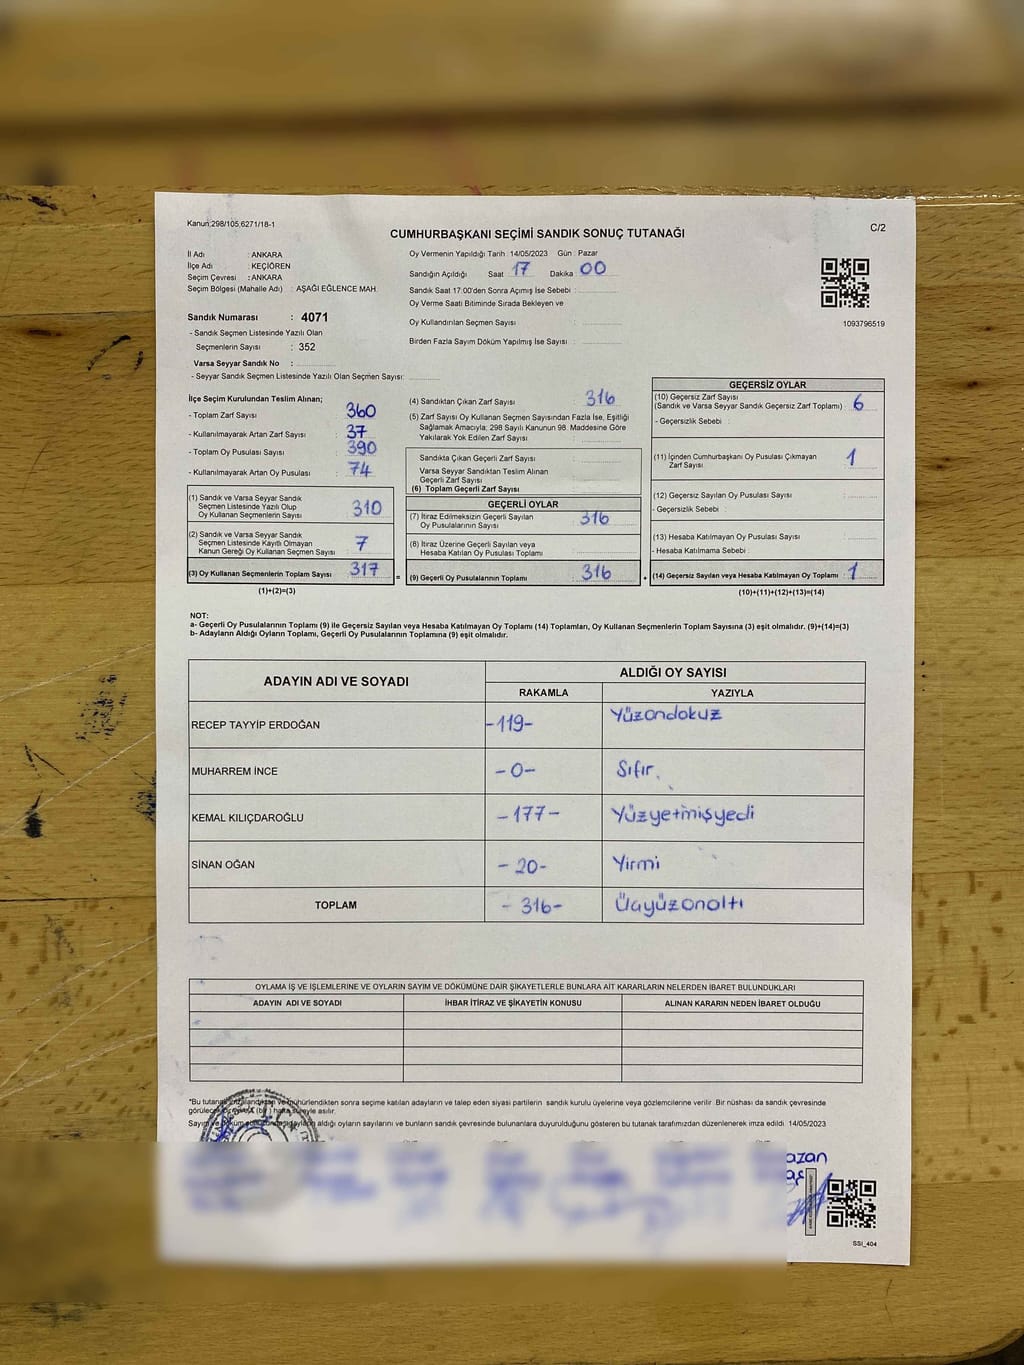 Kanun:298/105,6271/18-1
C/2
CUMHURBAŞKANI SEÇİMİ SANDIK SONUÇ TUTANAĞI
İl Adı : ANKARA
İlçe Adı : KEÇİÖREN
Seçim Çevresi : ANKARA
Seçim Bölgesi (Mahalle Adı) : AŞAĞI EĞLENCE MAH.
Sandık Numarası : 4071
- Sandık Seçmen Listesinde Yazılı Olan
Seçmenlerin Sayısı : 352
Varsa Seyyar Sandık No :
- Seyyar Sandık Seçmen Listesinde Yazılı Olan Seçmen Sayısı:
Oy Vermenin Yapıldığı Tarih : 14/05/2023 Gün : Pazar
Sandığın Açıldığı Saat 17 Dakika 00
Sandık Saat 17:00'den Sonra Açımış İse Sebebi :
Oy Verme Saati Bitiminde Sırada Bekleyen ve
Oy Kullandırılan Seçmen Sayısı :
Birden Fazla Sayım Döküm Yapılmış İse Sayısı :
1093796519
İlçe Seçim Kurulundan Teslim Alınan;
- Toplam Zarf Sayısı : 360
- Kullanılmayarak Artan Zarf Sayısı : 37
- Toplam Oy Pusulası Sayısı : 390
- Kullanılmayarak Artan Oy Pusulası : 74
(1) Sandık ve Varsa Seyyar Sandık
Seçmen Listesinde Yazılı Olup
Oy Kullanan Seçmenlerin Sayısı 310
(2) Sandık ve Varsa Seyyar Sandık
Seçmen Listesinde Kayıtlı Olmayan
Kanun Gereği Oy Kullanan Seçmen Sayısı 7
(3) Oy Kullanan Seçmenlerin Toplam Sayısı 317
(1)+(2)=(3)
=
(4) Sandıktan Çıkan Zarf Sayısı : 316
(5) Zarf Sayısı Oy Kullanan Seçmen Sayısından Fazla İse, Eşitliği
Sağlamak Amacıyla; 298 Sayılı Kanunun 98. Maddesine Göre
Yakılarak Yok Edilen Zarf Sayısı :
Sandıkta Çıkan Geçerli Zarf Sayısı :
Varsa Seyyar Sandıktan Teslim Alınan
Geçerli Zarf Sayısı :
(6) Toplam Geçerli Zarf Sayısı :
GEÇERLİ OYLAR
(7) İtiraz Edilmeksizin Geçerli Sayılan
Oy Pusulalarının Sayısı : 316
(8) İtiraz Üzerine Geçerli Sayılan veya
Hesaba Katılan Oy Pusulası Toplamı :
(9) Geçerli Oy Pusulalarının Toplamı : 316
+
GEÇERSİZ OYLAR
(10) Geçersiz Zarf Sayısı
(Sandık ve Varsa Seyyar Sandık Geçersiz Zarf Toplamı) : 6
- Geçersizlik Sebebi :
(11) İçinden Cumhurbaşkanı Oy Pusulası Çıkmayan
Zarf Sayısı : 1
(12) Geçersiz Sayılan Oy Pusulası Sayısı :
- Geçersizlik Sebebi :
(13) Hesaba Katılmayan Oy Pusulası Sayısı :
- Hesaba Katılmama Sebebi :
(14) Geçersiz Sayılan veya Hesaba Katılmayan Oy Toplamı : 1
(10)+(11)+(12)+(13)=(14)
NOT:
a- Geçerli Oy Pusulalarının Toplamı (9) ile Geçersiz Sayılan veya Hesaba Katılmayan Oy Toplamı (14) Toplamları, Oy Kullanan Seçmenlerin Toplam Sayısına (3) eşit olmalıdır. (9)+(14)=(3)
b- Adayların Aldığı Oyların Toplamı, Geçerli Oy Pusulalarının Toplamına (9) eşit olmalıdır.
ADAYIN ADI VE SOYADI ALDIĞI OY SAYISI
RAKAMLA YAZIYLA
RECEP TAYYİP ERDOĞAN -119- Yüzondokuz
MUHARREM İNCE -0- Sıfır.
KEMAL KILIÇDAROĞLU -177- Yüzyetmişyedi
SİNAN OĞAN -20- Yirmi
TOPLAM -316- Üçyüzonaltı
OYLAMA İŞ VE İŞLEMLERINE VE OYLARIN SAYIM VE DÖKÜMÜNE DAİR ŞİKAYETLERLE BUNLARA AİT KARARLARIN NELERDEN İBARET BULUNDUKLARI
ADAYIN ADI VE SOYADI İHBAR İTİRAZ VE ŞİKAYETİN KONUSU ALINAN KARARIN NEDEN İBARET OLDUĞU
*Bu tutanak ve mühürlendikten sonra seçime katılan adayların ve talep eden siyasi partilerin sandık kurulu üyelerine veya gözlemcilerine verilir. Bir nüshası da sandık çevresinde
süreyle asılır.
aldığı oyların sayılarını ve bunların sandık çevresinde bulunanlara duyurulduğunu gösteren bu tutanak tarafımızdan düzenlenerek imza edildi. 14/05/2023
azan
SSI_404